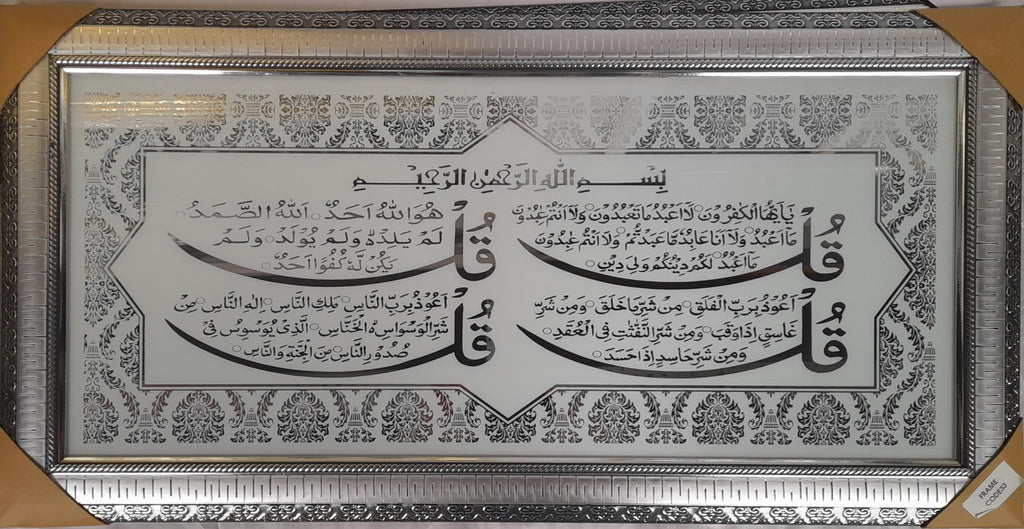 بِسْمِ اللّٰهِ الرَّحْمٰنِ الرَّحِيْمِ
قُلْ يٰٓاَيُّهَا الْكٰفِرُوْنَ ۝ لَآ اَعْبُدُ مَا تَعْبُدُوْنَ ۝ وَلَآ اَنْتُمْ عٰبِدُوْنَ
مَآ اَعْبُدُ ۝ وَلَآ اَنَا عَابِدٌ مَّا عَبَدْتُّمْ ۝ وَلَآ اَنْتُمْ عٰبِدُوْنَ
مَآ اَعْبُدُ ۝ لَكُمْ دِيْنُكُمْ وَلِيَ دِيْنِ ۝
قُلْ هُوَ اللّٰهُ اَحَدٌ ۝ اَللّٰهُ الصَّمَدُ ۝
لَمْ يَلِدْ وَلَمْ يُوْلَدْ ۝ وَلَمْ
يَكُنْ لَّهٗ كُفُوًا اَحَدٌ ۝
قُلْ اَعُوْذُ بِرَبِّ الْفَلَقِ ۝ مِنْ شَرِّ مَا خَلَقَ ۝ وَمِنْ شَرِّ
غَاسِقٍ اِذَا وَقَبَ ۝ وَمِنْ شَرِّ النَّفّٰثٰتِ فِي الْعُقَدِ ۝
وَمِنْ شَرِّ حَاسِدٍ اِذَا حَسَدَ ۝
قُلْ اَعُوْذُ بِرَبِّ النَّاسِ ۝ مَلِكِ النَّاسِ ۝ اِلٰهِ النَّاسِ ۝ مِنْ
شَرِّ الْوَسْوَاسِ الْخَنَّاسِ ۝ الَّذِيْ يُوَسْوِسُ فِيْ
صُدُوْرِ النَّاسِ ۝ مِنَ الْجِنَّةِ وَالنَّاسِ ۝
FRAME
CODE33